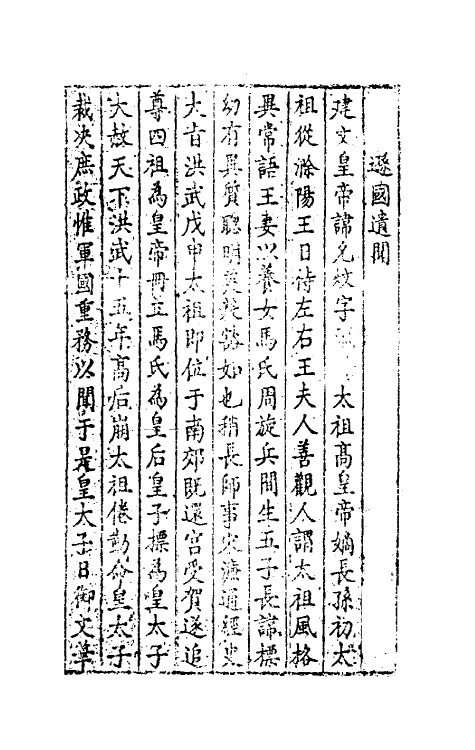 遜國遺聞
建文皇帝諱允炆字 太祖高皇帝嫡長孫初太
祖從滁陽王日侍左右王夫人善觀人謂太祖風格
異常語王妻以養女馬氏周旋兵間生五子長諱標
幼有異質聰明 豁如也稍長師事宋濂通經史
大旨洪武戊申太祖即位于南郊既還宮受賀遂追
尊四祖為皇帝冊立馬氏為皇后皇子標為皇太子
大赦天下洪武十五年高后崩太祖倦勤命皇太子
裁決庶政惟軍國重務以聞于是皇太子日御文華